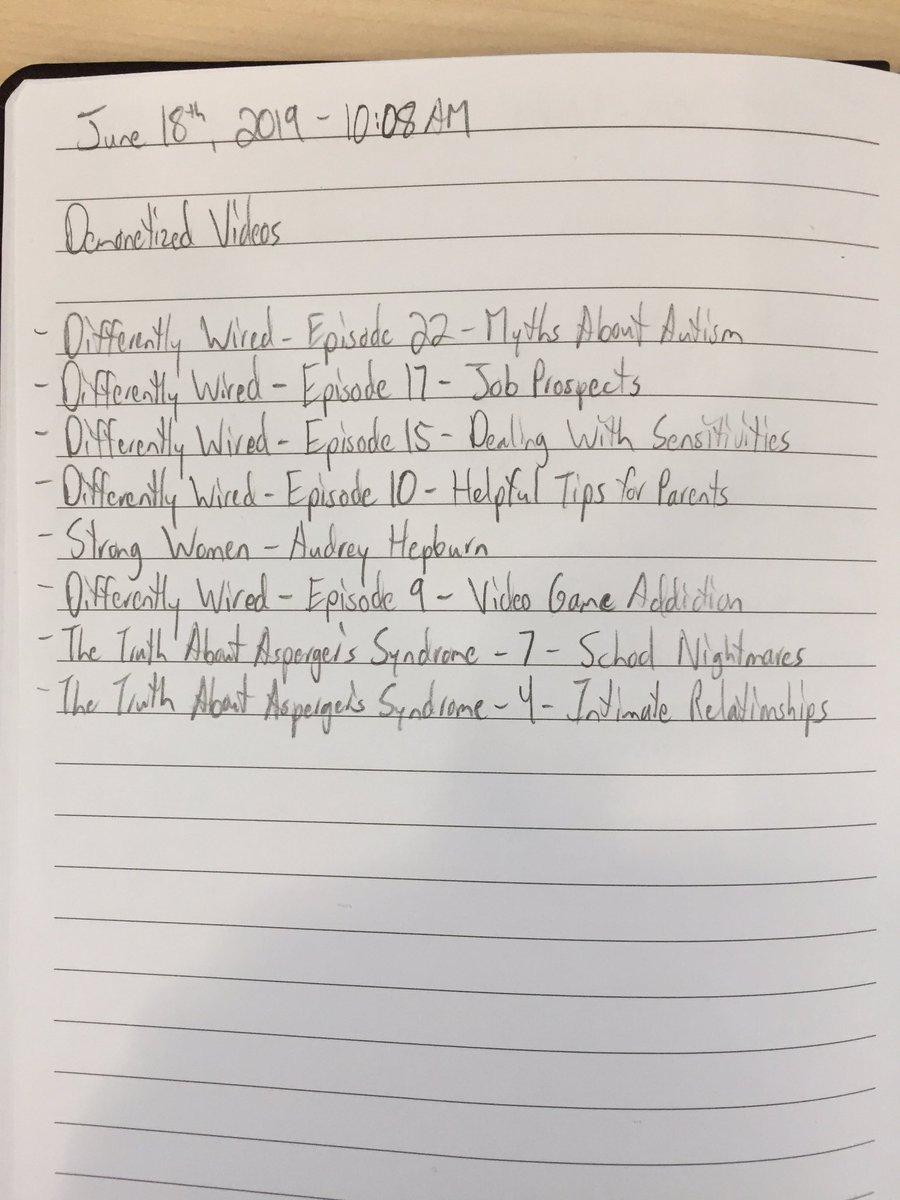 June 18th, 2019 - 10:08 AM
Demonetized Videos
- Differently Wired - Episode 22 - Myths About Autism
- Differently Wired - Episode 17 - Job Prospects
- Differently Wired - Episode 15 - Dealing With Sensitivities
- Differently Wired - Episode 10 - Helpful Tips for Parents
- Strong Women - Audrey Hepburn
- Differently Wired - Episode 9 - Video Game Addiction
- The Truth About Asperger's Syndrome - 7 - School Nightmares
- The Truth About Asperger's Syndrome - 4 - Intimate Relationships